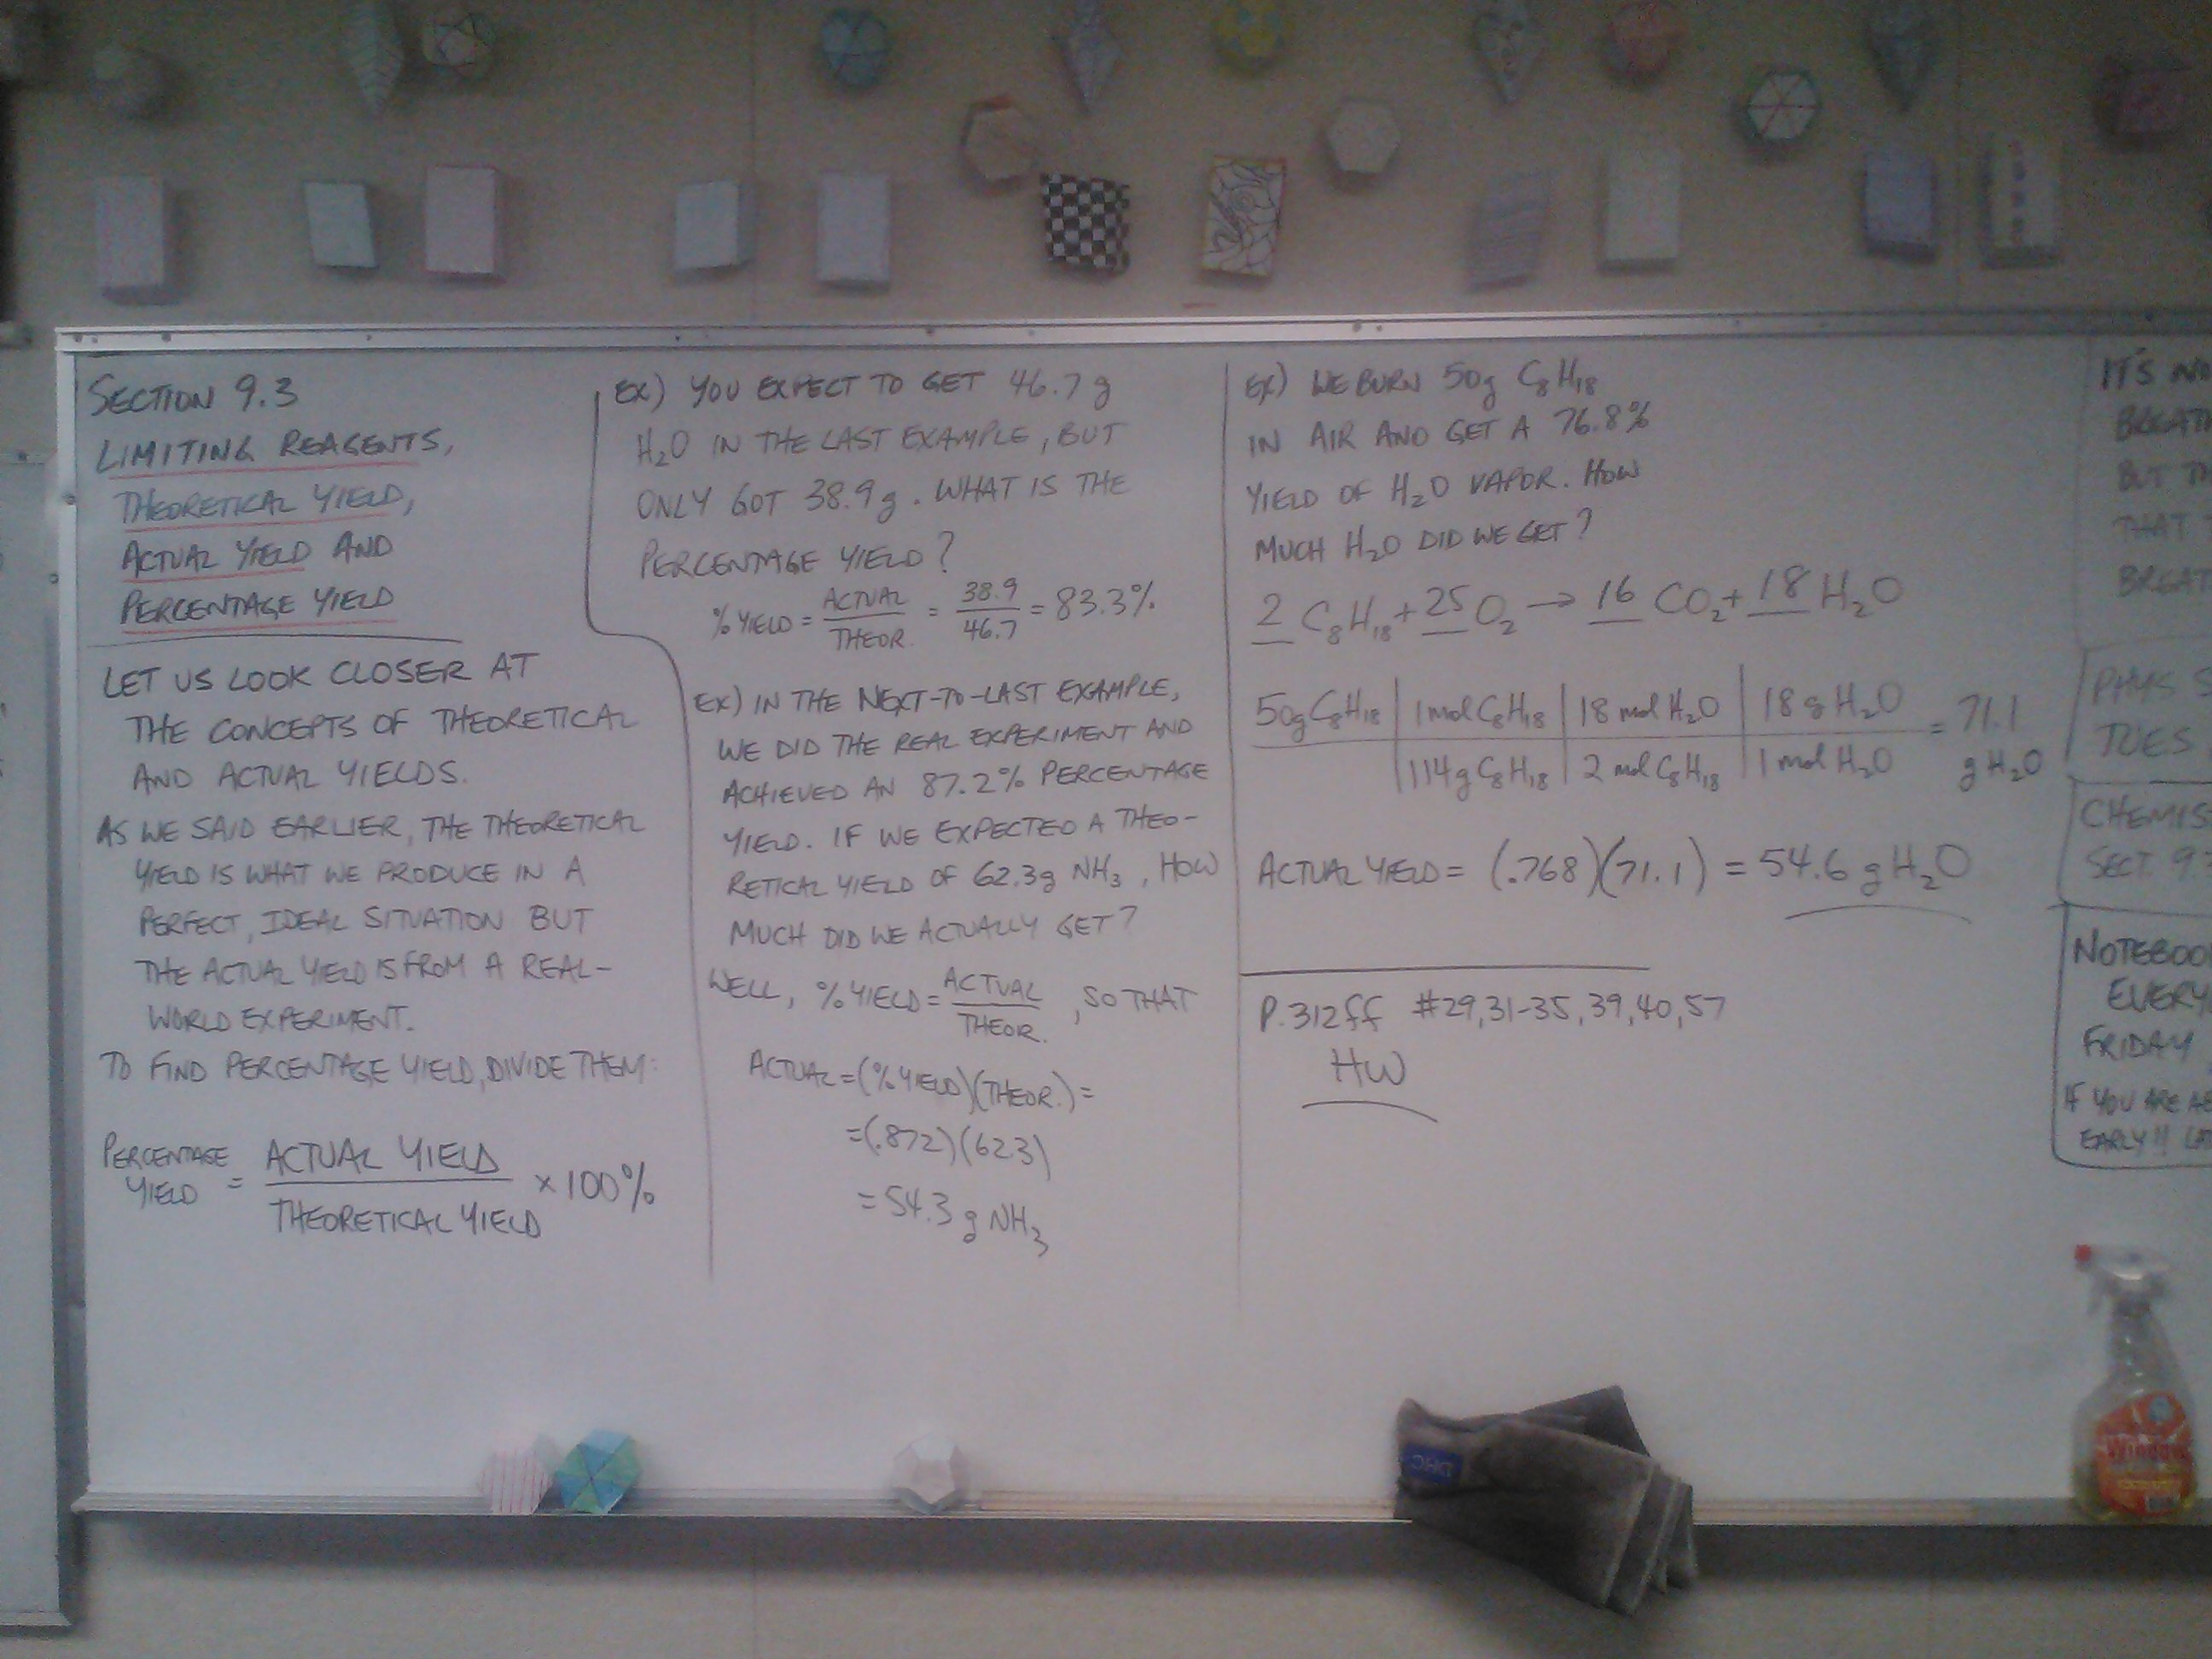 SECTION 9.3
LIMITING REAGENTS,
THEORETICAL YIELD,
ACTUAL YIELD AND
PERCENTAGE YIELD
LET US LOOK CLOSER AT
THE CONCEPTS OF THEORETICAL
AND ACTUAL YIELDS.
AS WE SAID EARLIER, THE THEORETICAL
YIELD IS WHAT WE PRODUCE IN A
PERFECT, IDEAL SITUATION BUT
THE ACTUAL YIELD IS FROM A REAL-
WORLD EXPERIMENT.
TO FIND PERCENTAGE YIELD, DIVIDE THEM:
PERCENTAGE YIELD = ACTUAL YIELD / THEORETICAL YIELD × 100%
EX) YOU EXPECT TO GET 46.7 g
H₂O IN THE LAST EXAMPLE, BUT
ONLY GOT 38.9 g. WHAT IS THE
PERCENTAGE YIELD?
% YIELD = ACTUAL / THEOR. = 38.9 / 46.7 = 83.3%
EX) IN THE NEXT-TO-LAST EXAMPLE,
WE DID THE REAL EXPERIMENT AND
ACHIEVED AN 87.2% PERCENTAGE
YIELD. IF WE EXPECTED A THEO-
RETICAL YIELD OF 62.3g NH₃, HOW
MUCH DID WE ACTUALLY GET?
WELL, % YIELD = ACTUAL / THEOR., SO THAT
ACTUAL = (% YIELD)(THEOR.) =
= (.872)(62.3)
= 54.3 g NH₃
EX) WE BURN 50g C₈H₁₈
IN AIR AND GET A 76.8%
YIELD OF H₂O VAPOR. HOW
MUCH H₂O DID WE GET?
2 C₈H₁₈ + 25 O₂ → 16 CO₂ + 18 H₂O
50g C₈H₁₈ | 1 mol C₈H₁₈ | 18 mol H₂O | 18 g H₂O = 71.1
114g C₈H₁₈ | 2 mol C₈H₁₈ | 1 mol H₂O g H₂O
ACTUAL YIELD = (.768)(71.1) = 54.6 g H₂O
P.312ff #29,31-35,39,40,57
HW
IT'S
BUT
THAT
PHYS
TUES
SECT.
EVERY
FRIDAY
IF YOU ARE
EARLY!!
DHC